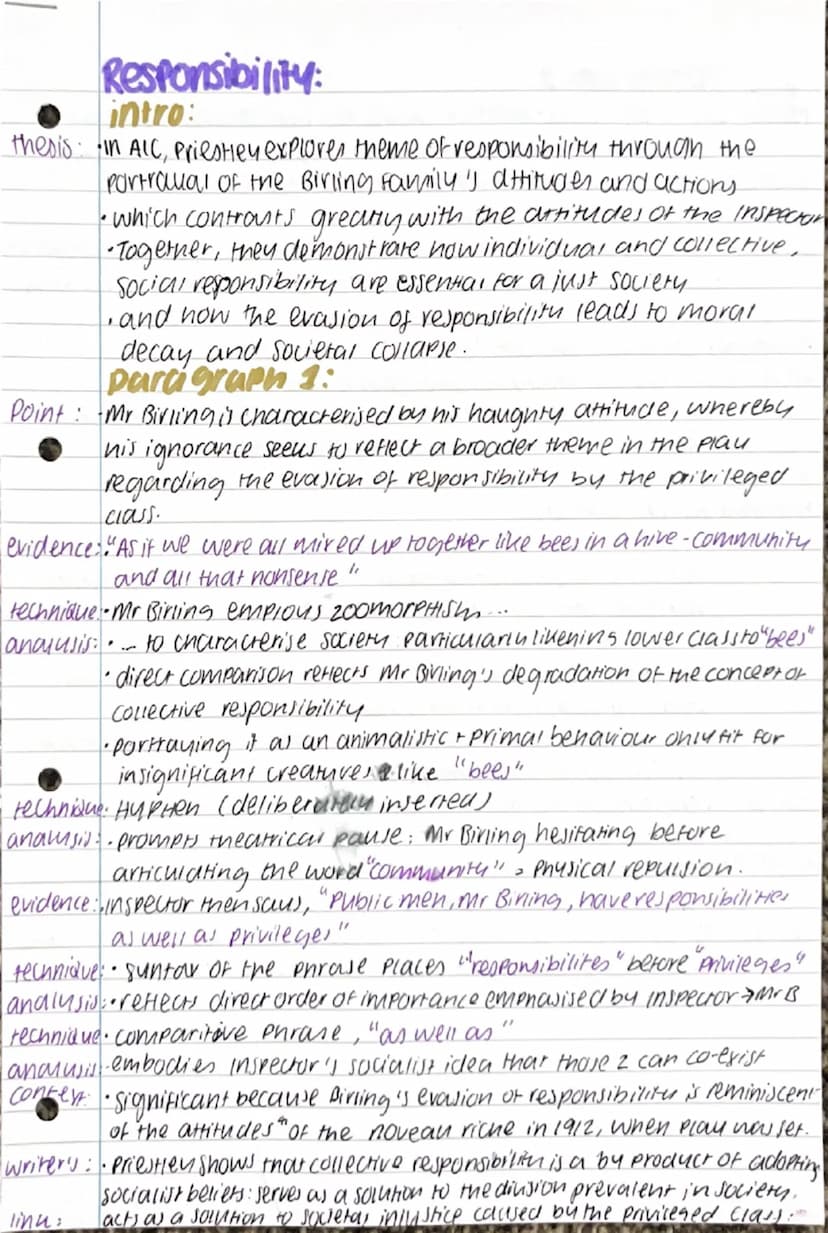 Responsibility:
intro:
thesis: • In AIC, Priestley explores theme of responsibility through the
portrayal of the Birling Family's attitudes and actions
• which contrasts greatly with the attitudes of the Inspector
• Together, they demonstrate how individual and collective,
social responsibility are essential for a just society
• and how the evasion of responsibility leads to moral
decay and societal collapse.
paragraph 1:
Point: • Mr Birling is characterised by his haughty attitude, whereby
his ignorance seeks to reflect a broader theme in the play
regarding the evasion of responsibility by the privileged
class.
evidence: • "As if we were all mixed up together like bees in a hive - community
and all that nonsense"
technique: • Mr Birling employs zoomorphism...
analysis: • ... to characterise society particularly likening lower class to "bees"
• direct comparison reflects Mr Birling's degradation of the concept of
collective responsibility
• portraying it as an animalistic + primal behaviour only fit for
insignificant creatures like "bees"
technique: HYPHEN (deliberately inserted)
analysis: • prompts theatrical pause; Mr Birling hesitating before
articulating the word "community" = physical repulsion.
evidence: • Inspector then says, "Public men, Mr Birling, have responsibilities
as well as privileges"
technique: • syntax of the phrase places "responsibilites" before "privileges"
analysis: • reflects direct order of importance emphasised by Inspector → Mr B
technique • comparitive phrase, "as well as"
analysis: • embodies Inspector's socialist idea that those 2 can co-exist
context: • significant because Birling's evasion of responsibility is reminiscent
of the attitudes of the noveau riche in 1912, when play was set.
writer's: • Priestley shows that collective responsibility is a by product of adopting
socialist beliefs: serves as a solution to the division prevalent in society.
link: acts as a solution to societal injustice caused by the privileged class.